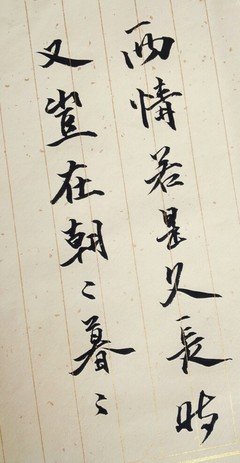 两情若是久長時
又豈在朝〻暮〻